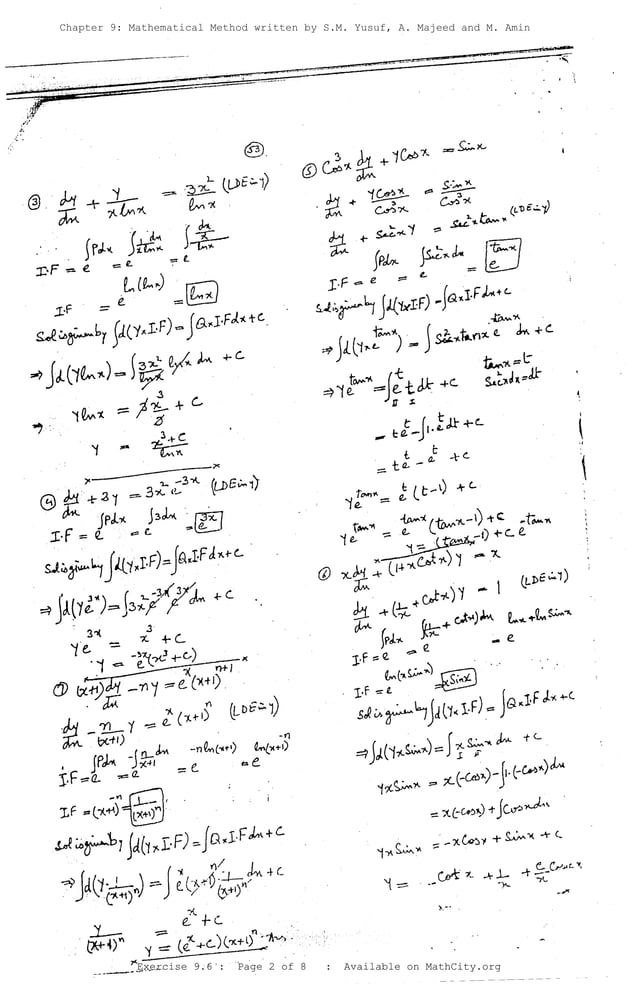 Chapter 9: Mathematical Method written by S.M. Yusuf, A. Majeed and M. Amin
53
③ dy/dx + y/(x lnx) = 3x²/lnx (LDE in y)
I.F = e^∫Pdx = e^∫(1/(x lnx))dx = e^∫((dx/x)/lnx)
I.F = e^ln(lnx) = lnx
Sol is given by ∫d(Y×I.F) = ∫Q×I.F dx + C
⇒ ∫d(Y lnx) = ∫(3x²/lnx) lnx dx + C
⇒ Y lnx = 3x³/3 + C
Y = (x³+C)/lnx
④ dy/dx + 3y = 3x² e^-3x (LDE in y)
I.F = e^∫Pdx = e^∫3dx = e^3x
Sol is given by ∫d(Y×I.F) = ∫Q×I.F dx + C
⇒ ∫d(Ye^3x) = ∫3x² e^-3x e^3x dx + C
Ye^3x = x³ + C
Y = e^-3x (x³+C)
⑦ (x+1) dy/dx - ny = e^x (x+1)^n+1
dy/dx - n/(x+1) Y = e^x (x+1)^n (LDE in y)
I.F = e^∫Pdx = e^-∫(n/(x+1))dx = e^-nln(x+1) = e^ln(x+1)^-n
I.F = (x+1)^-n = 1/(x+1)^n
Sol is given by ∫d(Y×I.F) = ∫Q×I.F dx + C
⇒ ∫d(Y·1/(x+1)^n) = ∫e^x (x+1)^n · 1/(x+1)^n dx + C
Y/(x+1)^n = e^x + C
Y = (e^x + C)(x+1)^n Ans.
⑤ Cos³x dy/dx + Y Cosx = Sinx
dy/dx + Y Cosx/Cos³x = Sinx/Cos³x
dy/dx + Sec²x Y = Sec²x tanx (LDE in y)
I.F = e^∫Pdx = e^∫Sec²x dx = e^tanx
Sol is given by ∫d(Y×I.F) = ∫Q×I.F dx + C
⇒ ∫d(Y×e^tanx) = ∫Sec²x tanx e^tanx dx + C
⇒ Ye^tanx = ∫e^t t dt + C
tanx = t
II I
Sec²x dx = dt
= te^t - ∫1·e^t dt + C
= te^t - e^t + C
Ye^tanx = e^t (t-1) + C
Ye^tanx = e^tanx (tanx-1) + C
Y = (tanx-1) + C e^-tanx
⑥ x dy/dx + (1+x Cotx) Y = x
dy/dx + (1/x + Cotx) Y = 1 (LDE in y)
I.F = e^∫Pdx = e^∫(1/x + Cotx)dx = e^lnx+ln Sinx
I.F = e^ln(x Sinx) = x Sinx
Sol is given by ∫d(Y×I.F) = ∫Q×I.F dx + C
⇒ ∫d(Yx Sinx) = ∫x Sinx dx + C
I II
Yx Sinx = x(-Cosx) - ∫1·(-Cosx)dx
= x(-Cosx) + ∫Cosx dx
Yx Sinx = -x Cosx + Sinx + C
Y = -Cot x + 1/x + C/x Cosec x
Exercise 9.6 : Page 2 of 8 : Available on MathCity.org